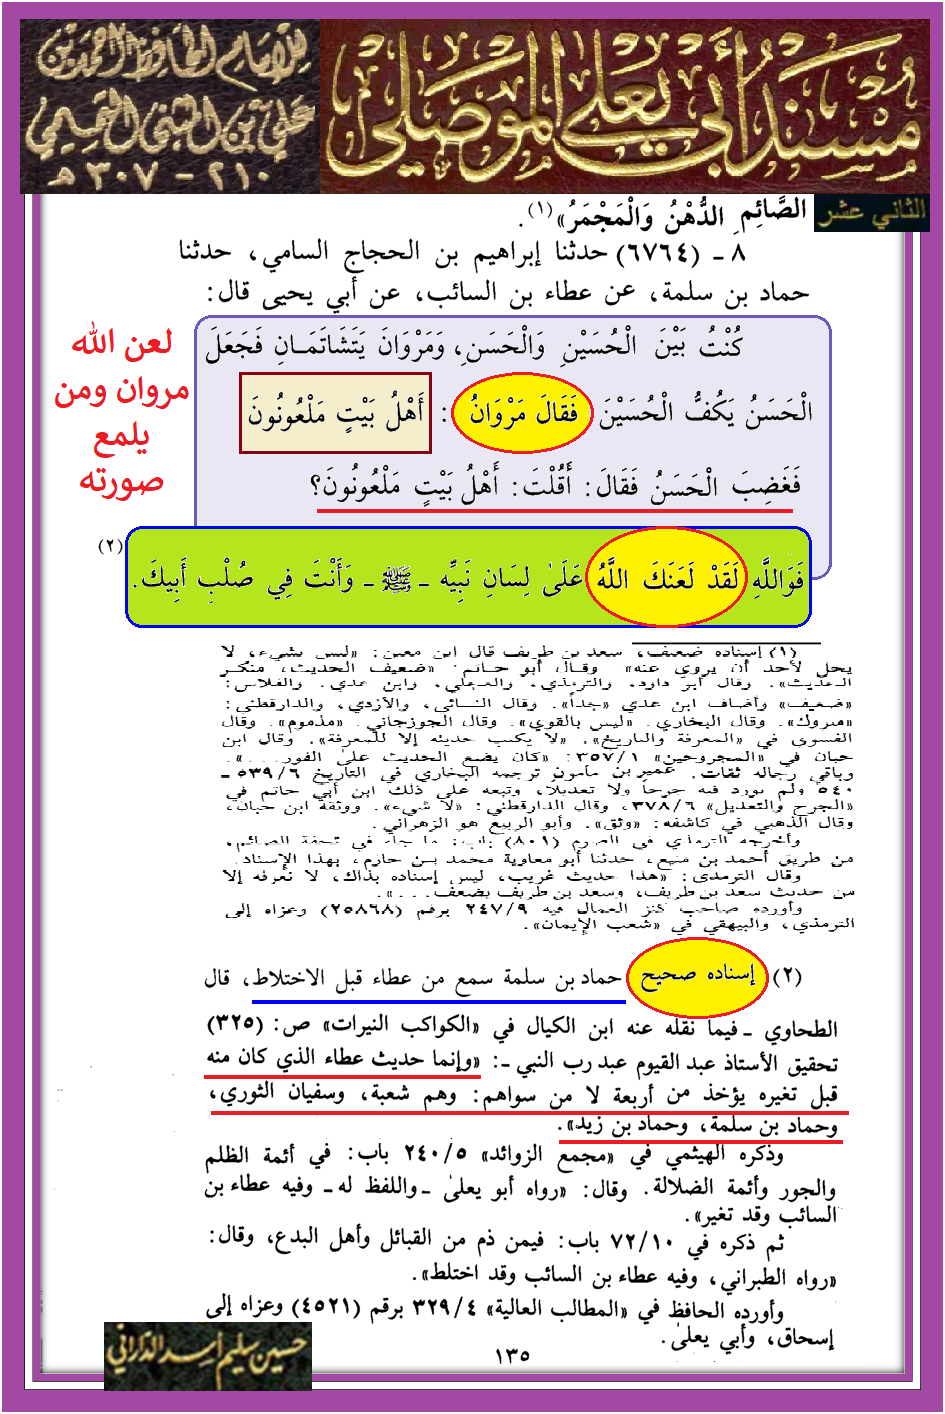 مسند أبي يعلى الموصلي
للإمام الحافظ أحمد بن
علي بن المثنى التميمي
٢١٠ - ٣٠٧ هـ
الثاني عشر
الصَّائِمِ الدُّهْنُ وَالْمَجْمَرُ»(١).
٨ ـ (٦٧٦٤) حدثنا إبراهيم بن الحجاج السامي، حدثنا
حماد بن سلمة، عن عطاء بن السائب، عن أبي يحيى قال:
كُنْتُ بَيْنَ الْحُسَيْنِ وَالْحَسَنِ، وَمَرْوَانَ يَتَشَاتَمَـانِ فَجَعَلَ
الْحَسَنُ يَكُفُّ الْحُسَيْنَ فَقَالَ مَرْوَانُ : أَهْلُ بَيْتٍ مَلْعُونُونَ
فَغَضِبَ الْحَسَنُ فَقَالَ: أَقُلْتَ: أَهْلُ بَيْتٍ مَلْعُونُونَ؟
فَوَاللَّهِ لَقَدْ لَعَنَكَ اللَّهُ عَلَىٰ لِسَانِ نَبِيِّه ـ ﷺ ـ وَأَنْتَ فِي صُلْبِ أَبِيكَ.
(٢)
لعن الله
مروان ومن
يلمع
صورته
(١) إسناده ضعيف، سعد بن طريف قال ابن معين: «ليس بشيء، لا
يحل لأحد أن يروي عنه» وقال أبو حاتم: «ضعيف الحديث، منكر
الحديث». وقال أبو داود، والترمذي، والعجلي، وابن عدي. والفلاس:
«ضعيف» وأضاف ابن عدي «جداً». وقال النسائي، والأزدي، والدارقطني:
«متروك». وقال البخاري. «ليس بالقوي». وقال الجوزجاني. «مذموم». وقال
الفسوي في «المعرفة والتاريخ». «لا يكتب حديثه إلا للمعرفة». وقال ابن
حبان في «المجروحين» ١/٣٥٧: «كان يضع الحديث على الفور...».
وباقي رجاله ثقات. عمير بن مأمون ترجمه البخاري في التاريخ ٦/٥٣٩ ـ
٥٤٠ ولم يورد فيه جرحاً ولا تعديلاً، وتبعه على ذلك ابن أبي حاتم في
«الجرح والتعديل» ٦/٣٧٨، وقال الدارقطني: «لا شيء». ووثقه ابن حبان،
وقال الذهبي في كاشفه: «وثق». وأبو الربيع هو الزهراني.
وأخرجه الترمذي في الصوم (٨٠١) باب: ما جاء في تحفة الصائم،
من طريق أحمد بن منيع، حدثنا أبو معاوية محمد بن خازم، بهذا الإسناد.
وقال الترمذي: «هذا حديث غريب، ليس إسناده بذاك، لا نعرفه إلا
من حديث سعد بن طريف، وسعد بن طريف يضعف...».
وأورده صاحب كنز العمال فيه ٩/٢٤٧ برقم (٢٥٨٦٨) وعزاه إلى
الترمذي، والبيهقي في «شعب الإيمان».
(٢) إسناده صحيح حماد بن سلمة سمع من عطاء قبل الاختلاط، قال
الطحاوي ـ فيما نقله عنه ابن الكيال في «الكواكب النيرات» ص: (٣٢٥)
تحقيق الأستاذ عبد القيوم عبد رب النبي ـ: «وإنما حديث عطاء الذي كان منه
قبل تغيره يؤخذ من أربعة لا من سواهم: وهم شعبة، وسفيان الثوري،
وحماد بن سلمة، وحماد بن زيد».
وذكره الهيثمي في «مجمع الزوائد» ٥/٢٤٠ باب: في أئمة الظلم
والجور وأئمة الضلالة. وقال: «رواه أبو يعلىٰ ـ واللفظ له ـ وفيه عطاء بن
السائب وقد تغير».
ثم ذكره في ١٠/٧٢ باب: فيمن ذم من القبائل وأهل البدع، وقال:
«رواه الطبراني، وفيه عطاء بن السائب وقد اختلط».
وأورده الحافظ في «المطالب العالية» ٤/٣٢٩ برقم (٤٥٢١) وعزاه إلى
إسحاق، وأبي يعلىٰ.
١٣٥
حسين سليم أسد الداراني